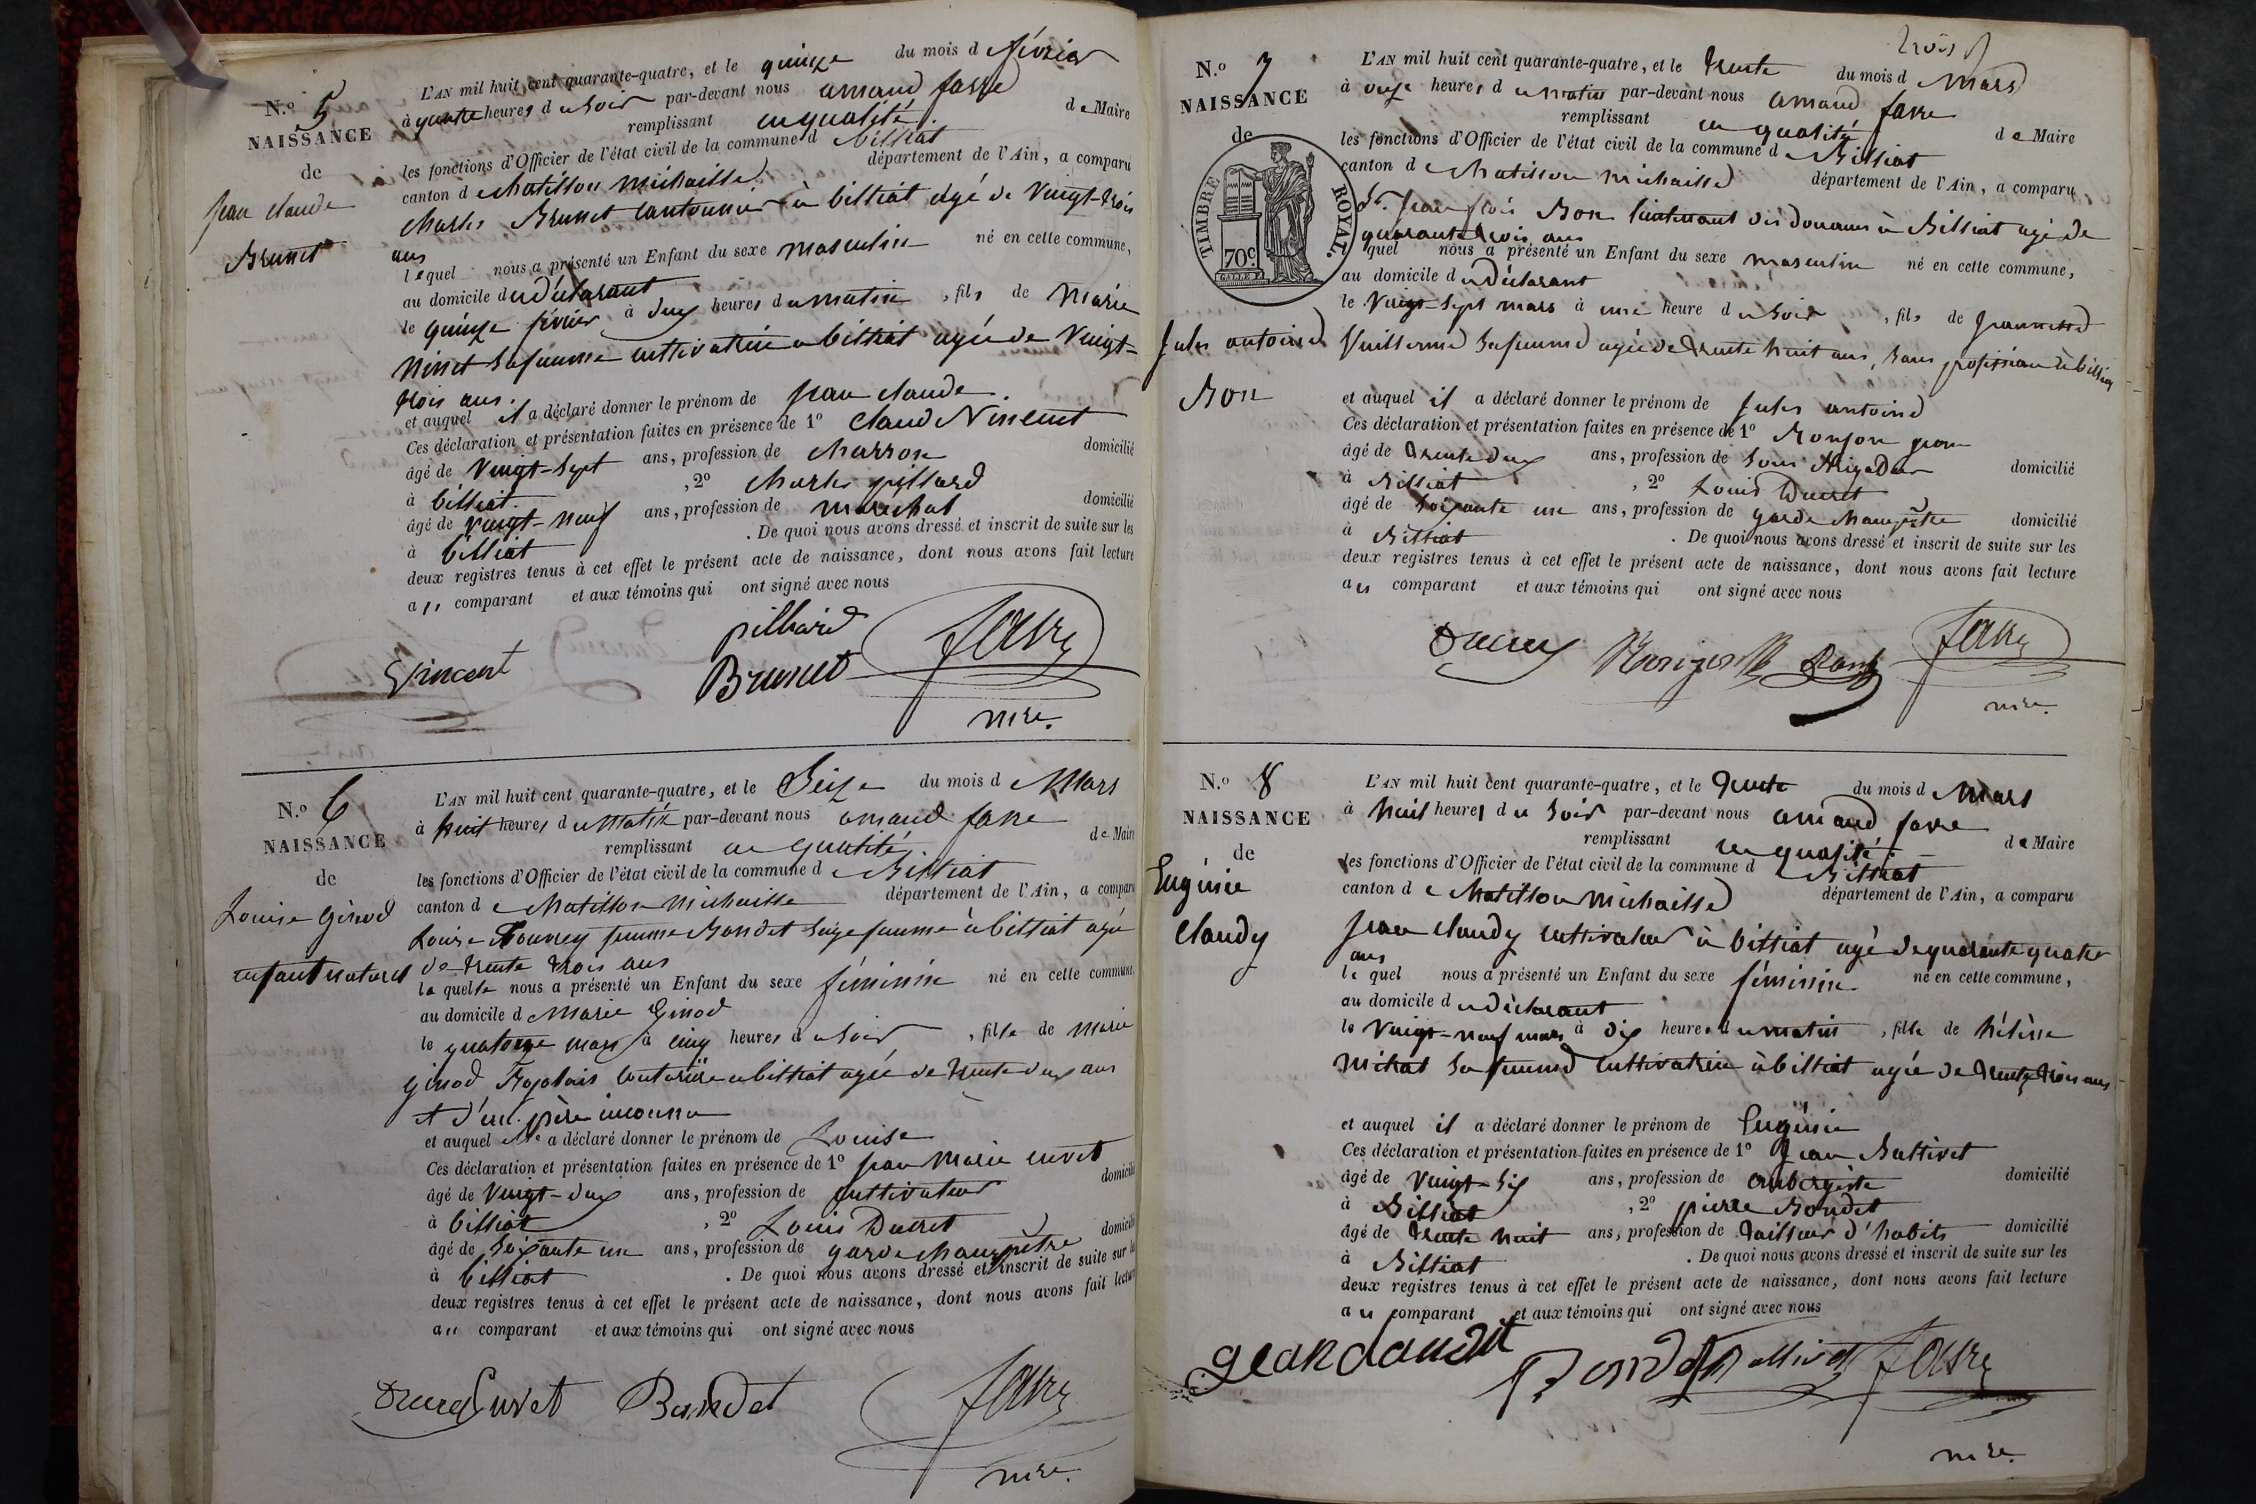 N.o 5
NAISSANCE
de
jean claude
Brunet
L'AN mil huit cent quarante-quatre, et le quinze du mois d février
à quatre heures du soir par-devant nous amand favre
remplissant en qualité de Maire
les fonctions d'Officier de l'état civil de la commune d billiat
canton de chatillon michaille département de l'Ain, a comparu
charles Brunet cantonnier à billiat agé de vingt-trois
ans
lequel nous a présenté un Enfant du sexe masculin né en cette commune,
au domicile du déclarant
le quinze février à deux heures du matin, fils de Marie
Ninet sa femme cultivatrice à billiat agée de vingt-
trois ans.
et auquel il a déclaré donner le prénom de jean claude.
Ces déclaration et présentation faites en présence de 1o claud Vincent
âgé de vingt-sept ans, profession de charron domicilié
à billiat. , 2o charles pillard
âgé de vingt-neuf ans, profession de maréchal domicilié
à billiat . De quoi nous avons dressé et inscrit de suite sur les
deux registres tenus à cet effet le présent acte de naissance, dont nous avons fait lecture
au comparant et aux témoins qui ont signé avec nous
pillard
Vincent Brunet favre
mre.
N.o 6
NAISSANCE
de
Louise ginod
enfant naturel
L'AN mil huit cent quarante-quatre, et le Seize du mois d Mars
à huit heures du matin par-devant nous amand favre
remplissant en qualité de Maire
les fonctions d'Officier de l'état civil de la commune de Billiat
canton de chatillon Michaille département de l'Ain, a comparu
Louise femme Bondet sage femme à billiat agée
de trente trois ans
laquelle nous a présenté un Enfant du sexe féminin né en cette commune,
au domicile d Marie Ginod
le quatorze mars à cinq heures du soir, fille de Marie
ginod couturière à billiat agée de trente deux ans
et d'un père inconnu
et auquel elle a déclaré donner le prénom de Louise
Ces déclaration et présentation faites en présence de 1o jean Marie curvet
âgé de vingt-deux ans, profession de cultivateur domicilié
à billiat , 2o Louis Ducret
âgé de soixante un ans, profession de garde champêtre domicilié
à billiat . De quoi nous avons dressé et inscrit de suite sur les
deux registres tenus à cet effet le présent acte de naissance, dont nous avons fait lecture
au comparant et aux témoins qui ont signé avec nous
Ducret Curvet Bondet favre
mre.
trois
N.o 7
NAISSANCE
de
TIMBRE ROYAL.
70 c.
jules antoine
Bon
L'AN mil huit cent quarante-quatre, et le trente du mois d Mars
à onze heures du matin par-devant nous amand favre
remplissant en qualité de Maire
les fonctions d'Officier de l'état civil de la commune de Billiat
canton de chatillon michaille département de l'Ain, a comparu
Sr. jean fçois Bon lieutenant des douanes à Billiat agé de
quarante trois ans
quel nous a présenté un Enfant du sexe masculin né en cette commune,
au domicile du déclarant
le vingt-sept mars à une heure du soir, fils de jeannette
Vuillerme sa femme agée de trente huit ans, sans profession à billiat
et auquel il a déclaré donner le prénom de jules antoine
Ces déclaration et présentation faites en présence de 1o
âgé de trente deux ans, profession de sous Brigadier domicilié
à Billiat , 2o Louis Ducret
âgé de soixante un ans, profession de garde champêtre domicilié
à Billiat . De quoi nous avons dressé et inscrit de suite sur les
deux registres tenus à cet effet le présent acte de naissance, dont nous avons fait lecture
au comparant et aux témoins qui ont signé avec nous
Ducret Bon favre
mre.
N.o 8
NAISSANCE
de
Eugénie
Claudy
L'AN mil huit cent quarante-quatre, et le trente du mois d Mars
à huit heures du soir par-devant nous amand favre
remplissant en qualité de Maire
les fonctions d'Officier de l'état civil de la commune de Billiat
canton de chatillon michaille département de l'Ain, a comparu
jean claudy cultivateur à billiat agé de quarante quatre
ans
lequel nous a présenté un Enfant du sexe féminin né en cette commune,
au domicile du déclarant
le vingt-neuf mars à dix heures du matin, fille de hélène
michat sa femme cultivatrice à billiat agée de trente trois ans
et auquel il a déclaré donner le prénom de Eugénie
Ces déclaration et présentation faites en présence de 1o jean Ballivet
âgé de vingt-six ans, profession de aubergiste domicilié
à Billiat , 2o pierre Bondet
âgé de trente huit ans, profession de tailleur d'habits domicilié
à Billiat . De quoi nous avons dressé et inscrit de suite sur les
deux registres tenus à cet effet le présent acte de naissance, dont nous avons fait lecture
au comparant et aux témoins qui ont signé avec nous
Bondet Ballivet favre
mre.